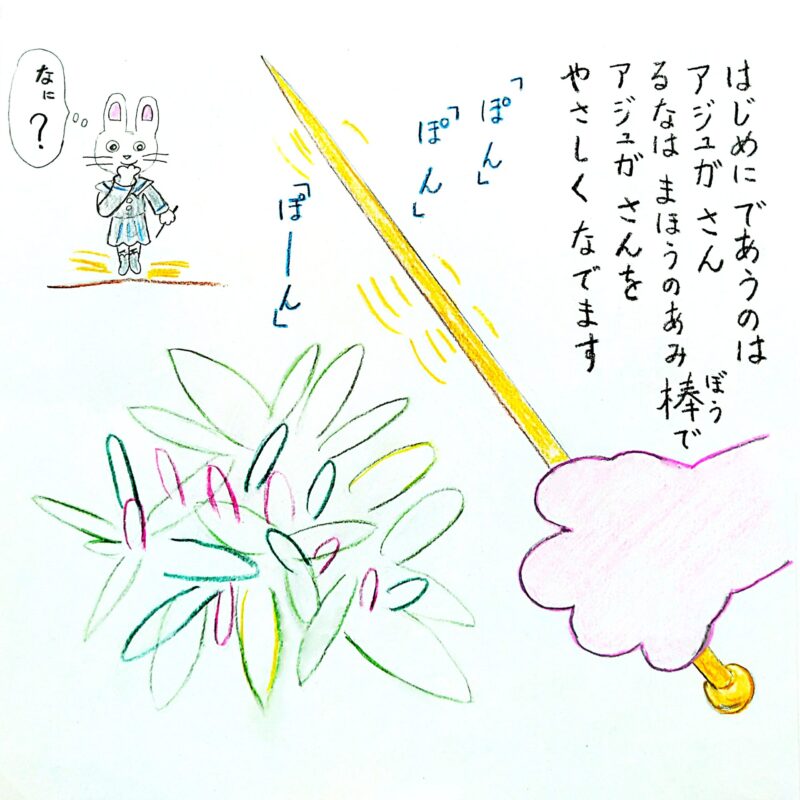 はじめに であうのは
アジュガ さん
るなは まほうのあみ棒で
ぼう
アジュガ さんを
やさしく なでます
「ぽん」
「ぽん」
「ぽーん」
なに
?